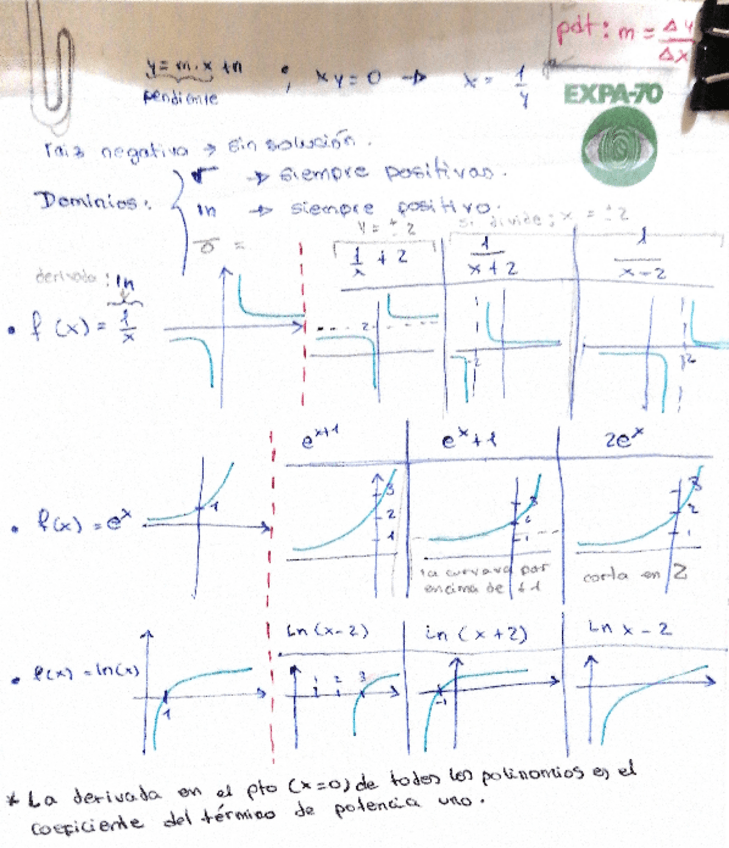 pdt: m = Δy/Δx
y = m·x + n ; xy = 0 → x = 1/y
pendiente
EXPA-70
raiz negativa → sin solución.
Dominios:
√ → siempre positivas.
ln → siempre positivo.
y = ± 2
si divide: x = ± 2
1/x + 2
1/(x+2)
1/(x-2)
derivada: ln
• f(x) = 1/x
2
-2
2
e^(x+1)
e^x + 1
2e^x
• f(x) = e^x
1
3
2
1
3
2
1
3
2
1
la curva va por
encima de +1
corta en 2
Ln (x-2)
Ln (x+2)
Ln x - 2
• f(x) = ln(x)
1
1 2 3
-1
* La derivada en el pto (x=0) de todos los polinomios es el
coeficiente del término de potencia uno.